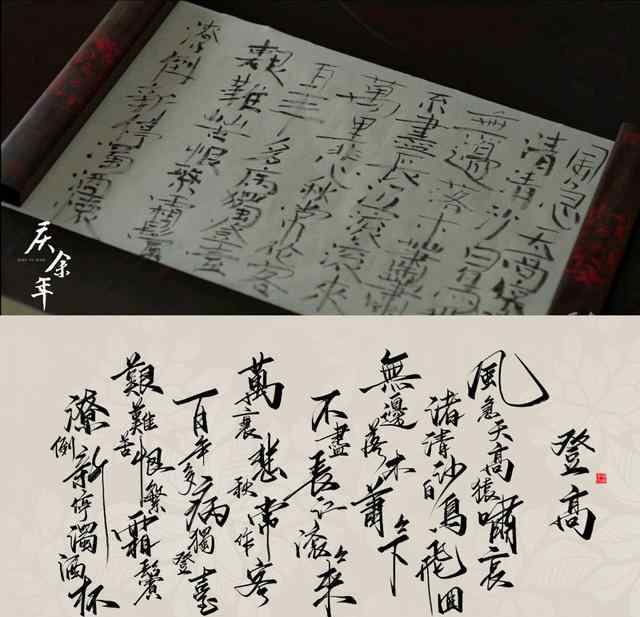 風急天高猿
清清沙白鳥
無邊落木蕭蕭
不盡長江滾滾來
萬里悲秋常作客
百年多病獨登臺
艱難苦恨繁霜鬢
潦倒新停濁酒
庆余年
登高
風急天高猿嘯哀
諸清沙白鳥飛回
無邊落木蕭々下
不盡長江滾々來
萬裏悲秋常作客
百年多病獨登臺
艱難苦恨繁霜鬢
潦倒新停濁酒杯